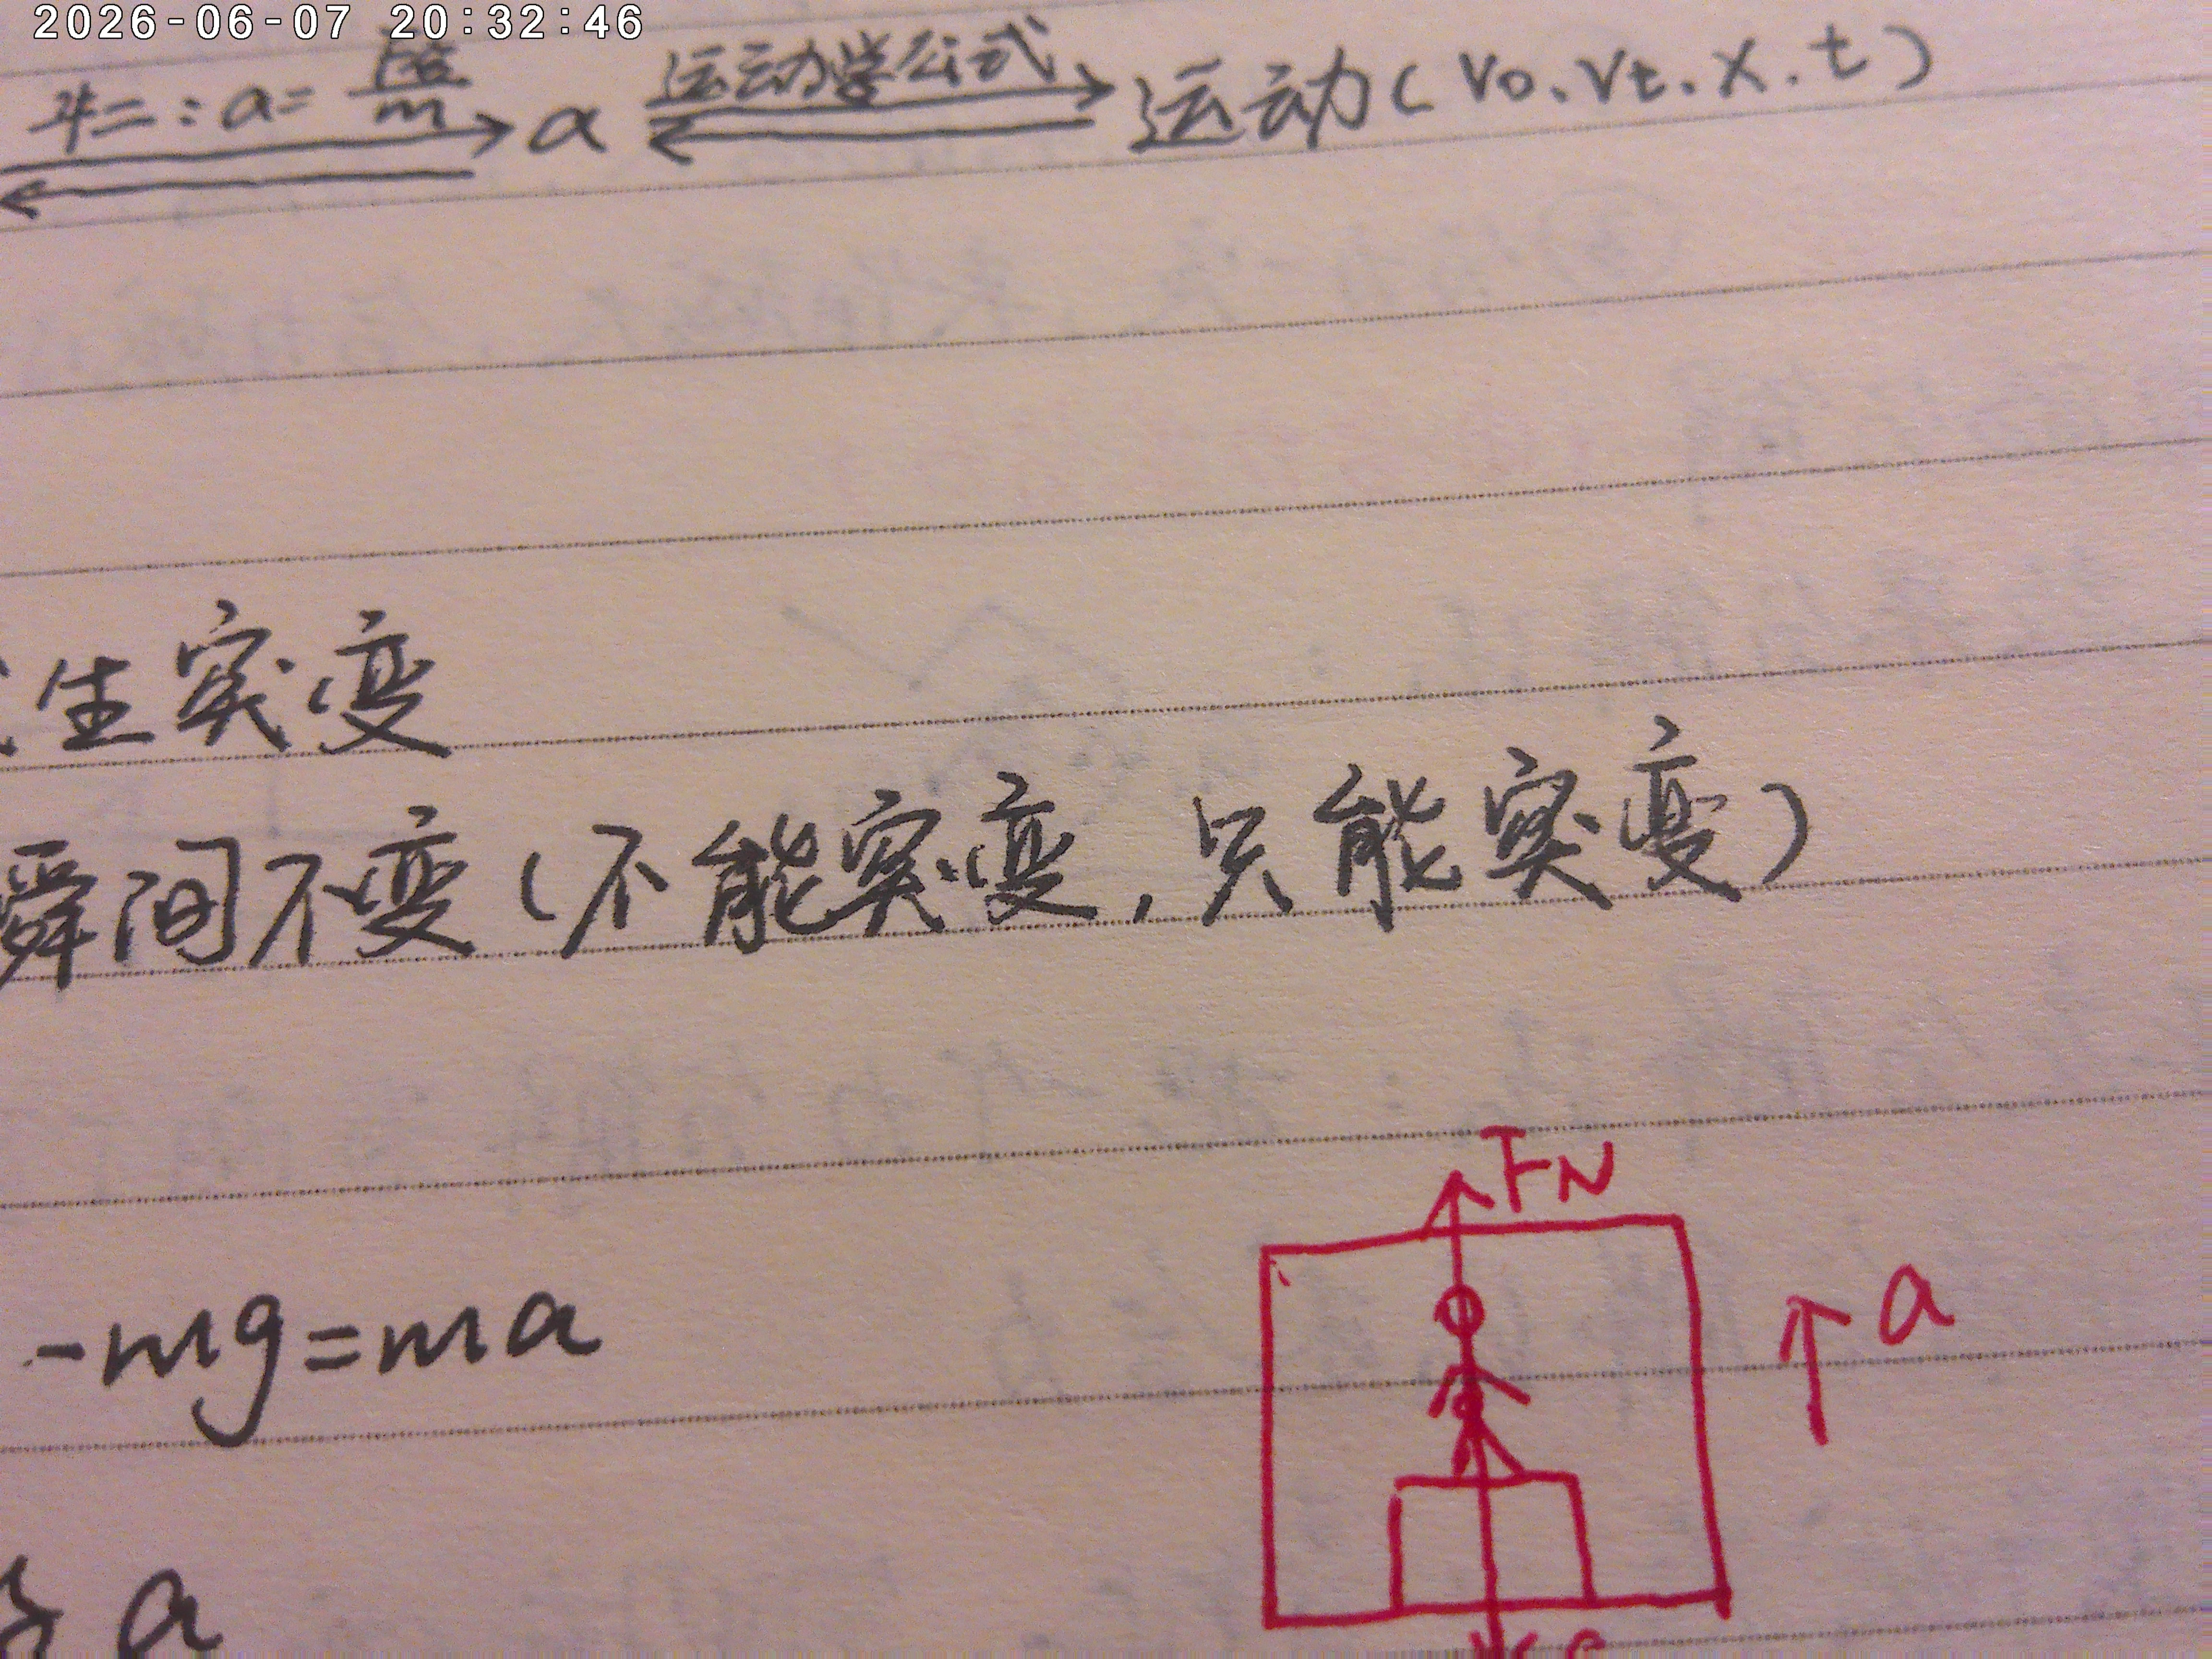 2026-06-07 20:32:46
牛二:a=F合/m a 运动学公式 运动(v0.vt.x.t)
生突变
瞬间不变(不能突变,只能突变)
FN
-mg=ma
a
a